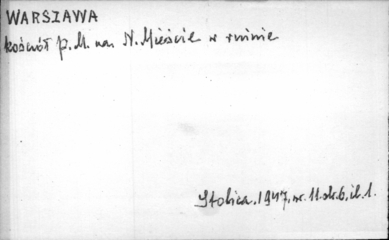 WARSZAWA
kościół p. M. na N. Mieście w ruinie
Stolica, 1947, nr. 11. str. 6, il. 1.